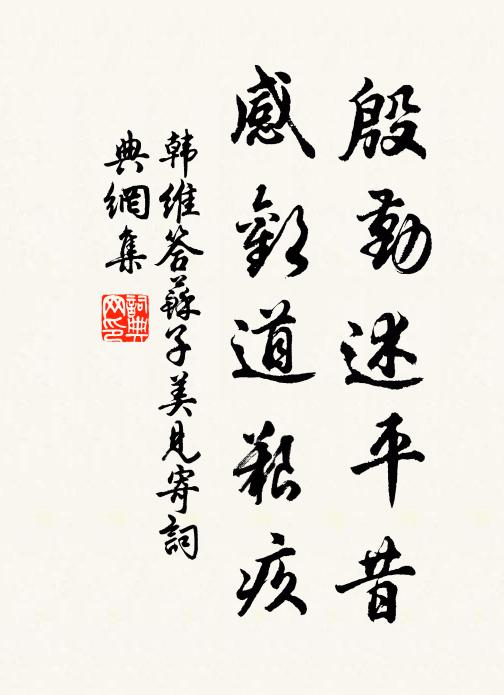 殷勤述平昔
感歎道艱疚
韓維答蘇子美見寄詞
典網集
詞典
网印